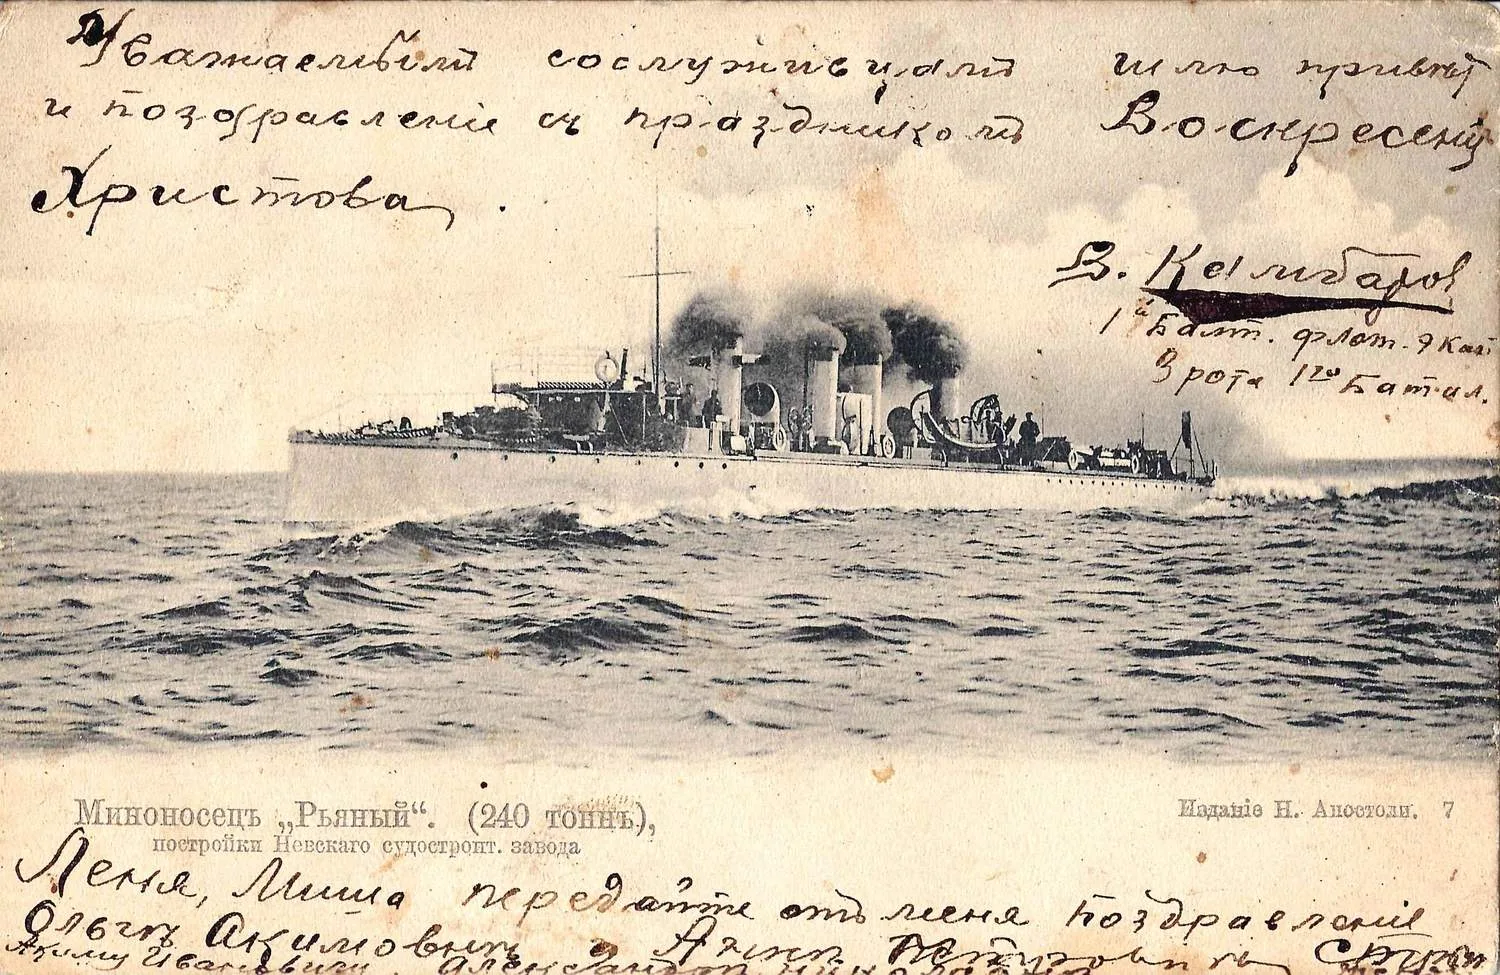 Уважаемымъ сослуживцамъ шлю привѣтъ
и поздравленіе съ праздникомъ Воскресенія
Христова.
В. Камбаров
1й Балт. флот. экап
3 рота 1го Батал.
Миноносецъ „Рьяный“. (240 тоннъ),
постройки Невскаго судостроит. завода
Изданіе Н. Апостоли. 7
Леня, Миша передайте отъ меня поздравленіе
Ольгѣ Акимовнѣ и Аннѣ Петровнѣ
Акиму Ивановичу, Александрѣ